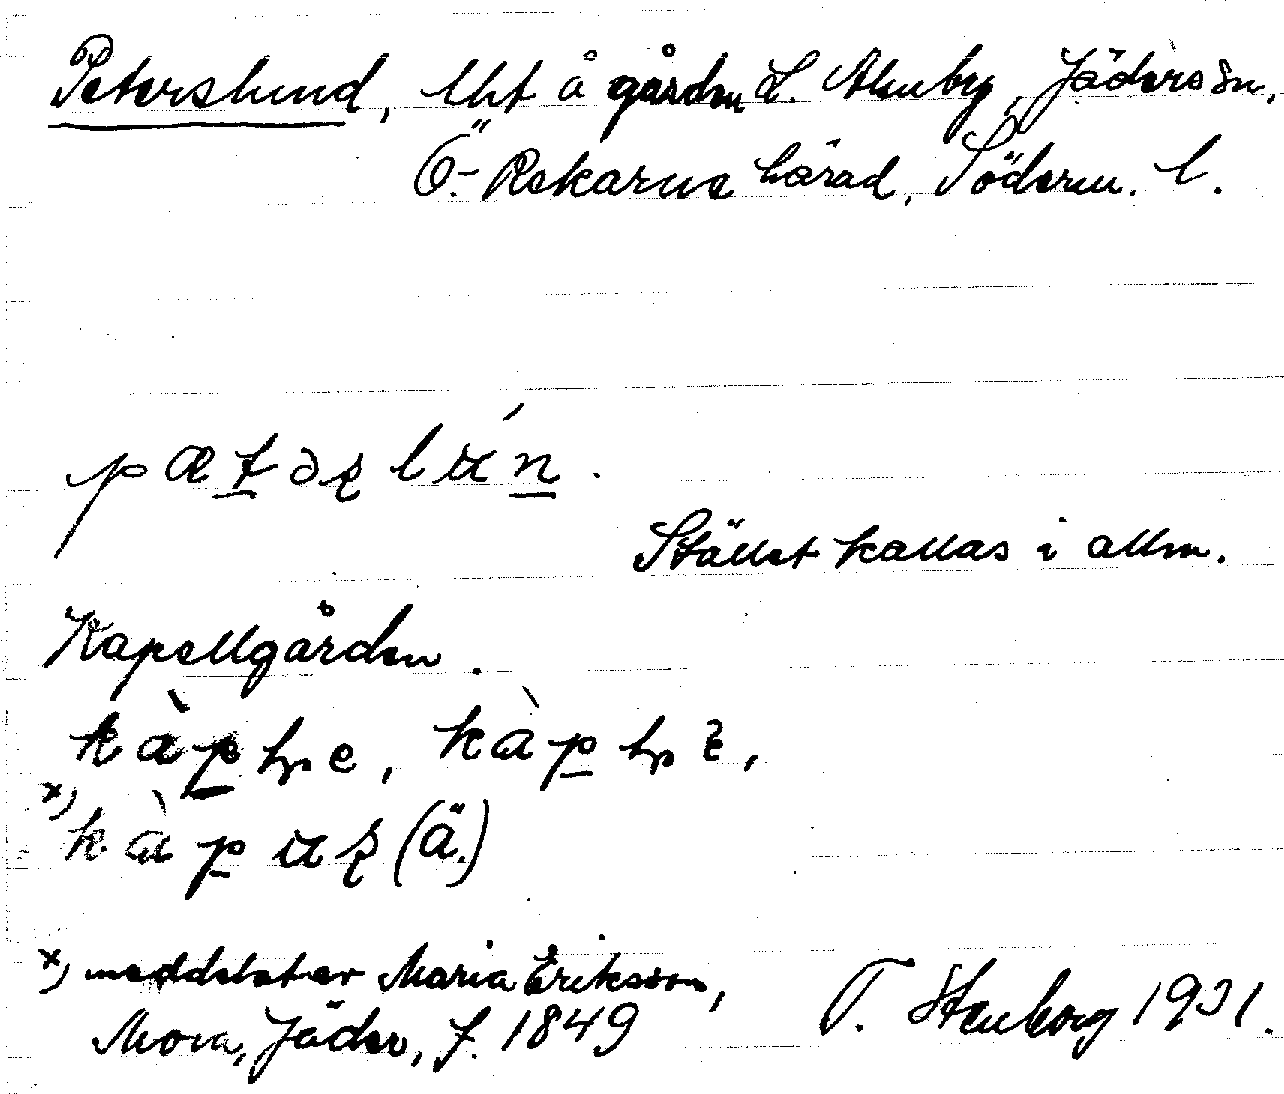 Peterslund, lht å gården L. Åkerby, Jäders sn,
Ö. Rekarne härad, Söderm. l.
pætəʂlɯ́n.
Stället kallas i allm.
Kapellgården.
kàphe, kàphɛ,
x) kàpɯʂ (ä.)
x) meddelat av Maria Eriksson,
Mora, Jäder, f. 1849
T. Stenborg 1931.